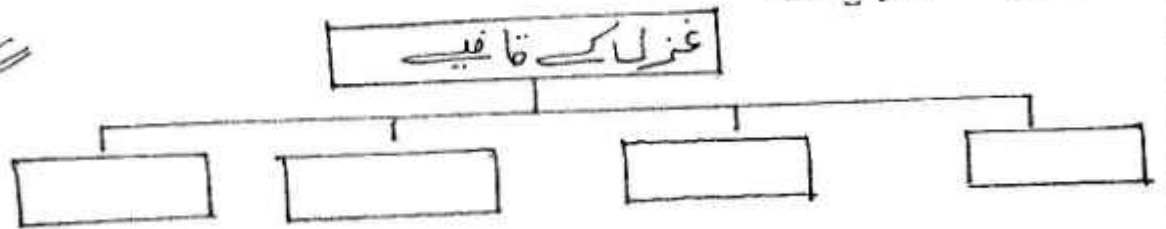 غزل کے قافیے